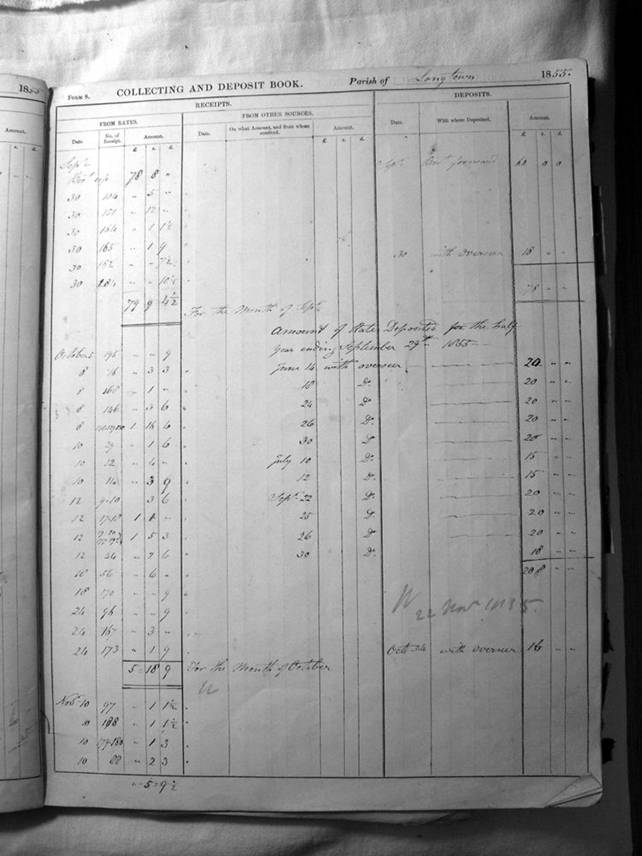 1855
FORM 8. COLLECTING AND DEPOSIT BOOK. Parish of Longtown 1855.
RECEIPTS. DEPOSITS.
FROM RATES. FROM OTHER SOURCES.
Date No. of Receipt. Amount. Date. On what Amount, and from whom received. Amount. Date. With whom Deposited. Amount.
£ s. d. £ s. d. £ s. d.
Sept Sept forward 60 0 0
78 8 "
30 " 5 "
30 151 " 12 "
30 " 1 1½
30 165 " 1 9 30 with overseer 18 " "
30 152 " " 7½
30 " " 10½ 78 " "
79 9 4½ For the Month of Sept
Amount of Rates Deposited for the half
October 5 195 " " 9 year ending September 29th 1855
8 16 " 3 3 June 14 with overseer 20 " "
8 " 1 " 18 Do 20 " "
8 146 " 3 6 24 Do 20 " "
8 1 16 6 26 Do 20 " "
10 29 " 1 6 30 Do 20 " "
10 12 " 4 " July 10 Do 15 " "
10 14 " 3 9 12 Do 15 " "
12 9-10 " 3 6 Sept 22 Do 20 " "
12 17-18 1 1 " 25 Do 20 " "
12 1 5 3 26 Do 20 " "
12 26 " 2 6 30 Do 18 " "
18 56 " 6 " 208 " "
18 170 " " 9
24 96 " " 9 22 Nov 1855
24 167 " 3 "
24 173 " 1 9 Oct 24 with overseer 16 " "
5 18 9 For the Month of October
Nov 10 97 " 1 1½
10 188 " 1 1½
10 179-180 " 1 3
10 88 " 2 3
" 5 9½